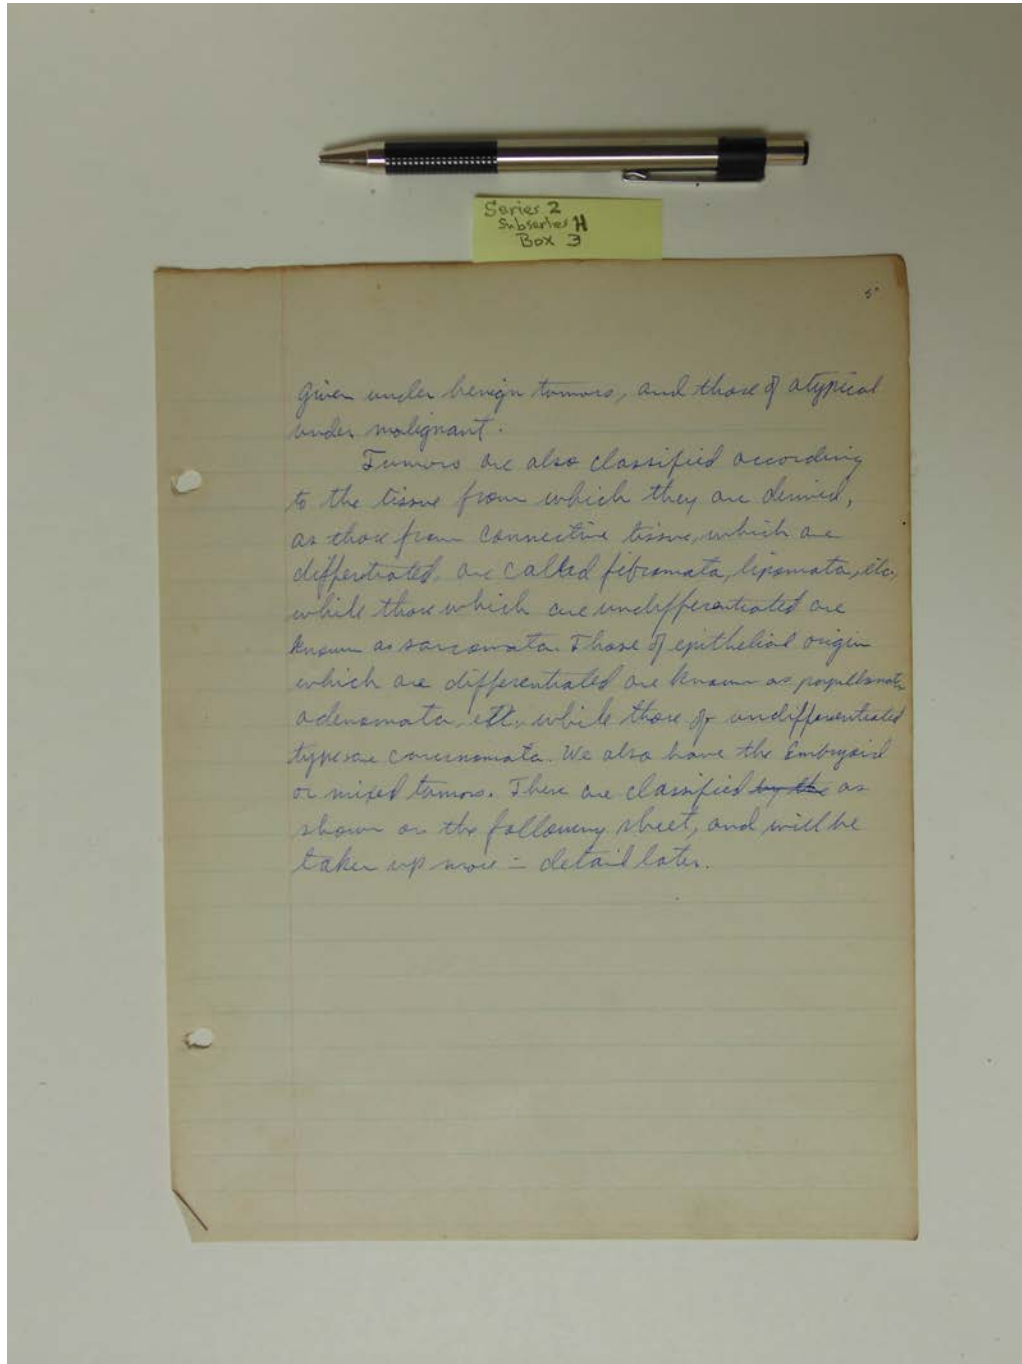 Series 2
Subseries H
Box 3
5
given under benign tumors, and those of atypical
under malignant.
Tumors are also classified according
to the tissue from which they are derived,
as those from connective tissue, which are
differtiated, are called fibromata, lipomata, etc,
while those which are undifferentiated are
known as sarcomata. Those of epithelial origin
which are differentiated are known as papillomata
adenomata, etc. while those of undifferentiated
types are carcinomata. We also have the Embryoid
or mixed tumors. These are classified by the as
shown on the following sheet, and will be
taken up more - detail later.